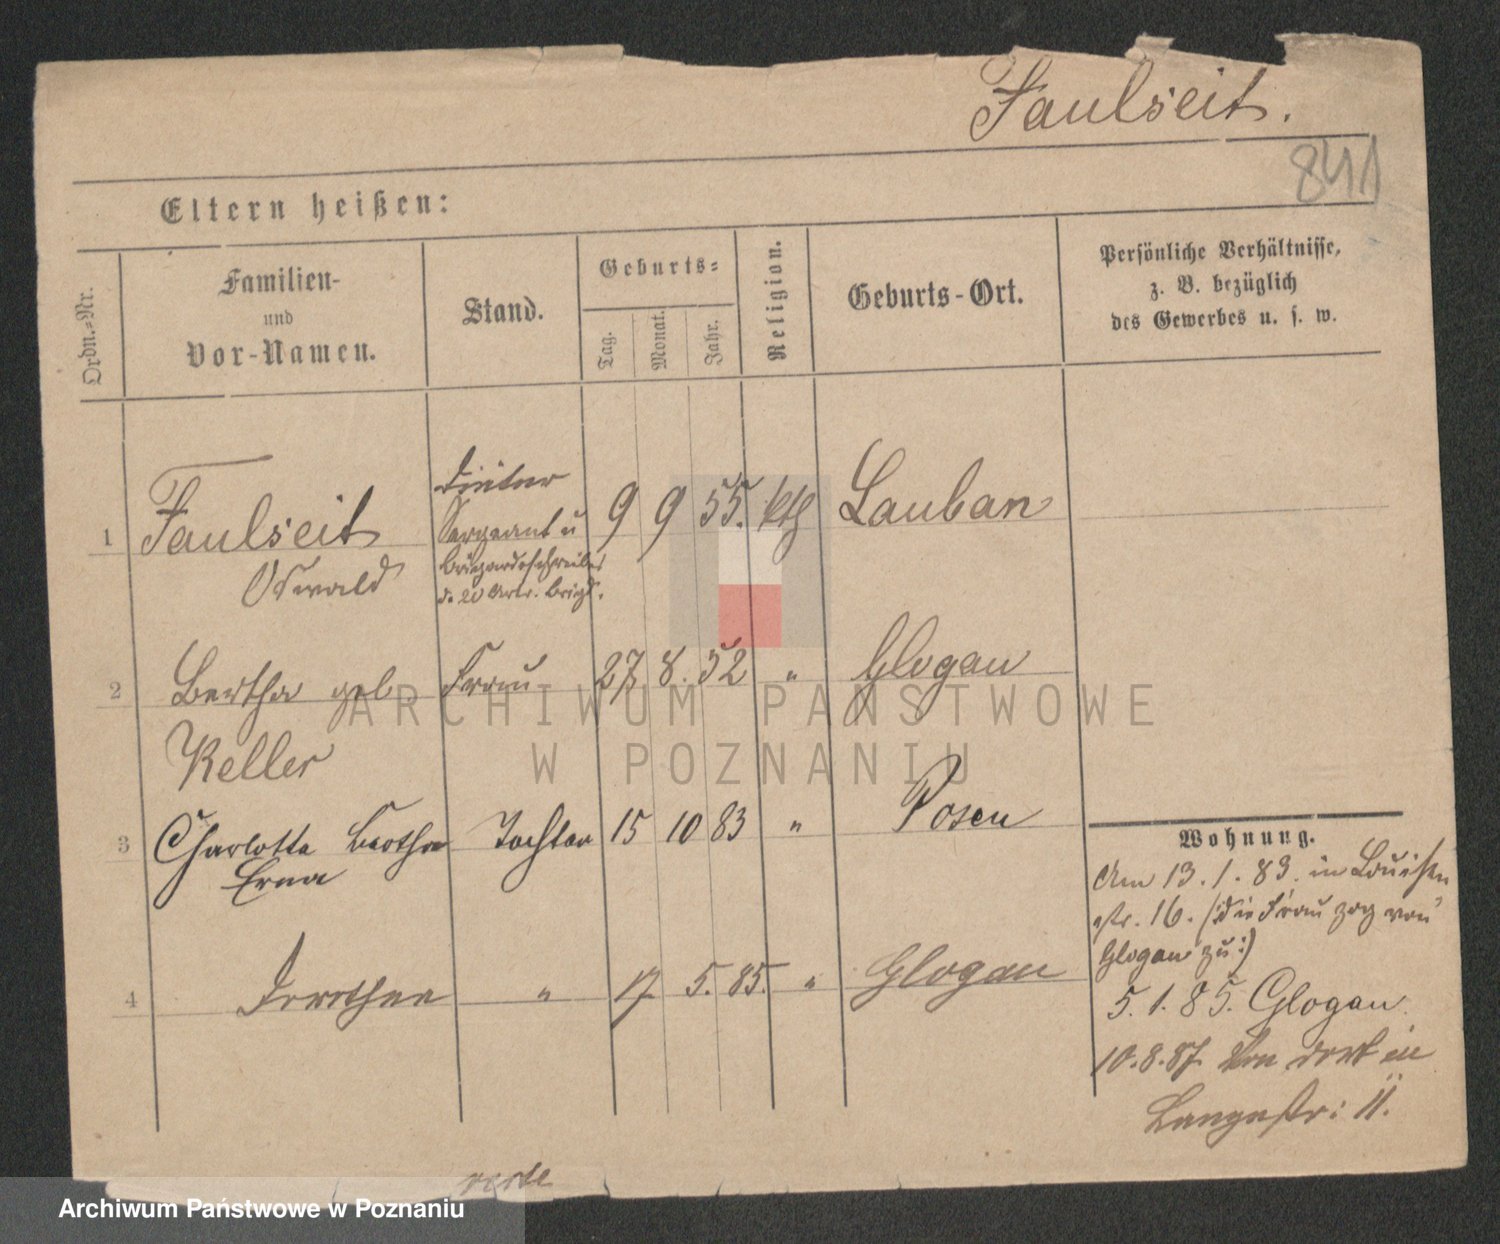 Faulseit.
841
Eltern heißen:
Ordn.=Nr.
Familien-
und
Vor-Namen.
Stand.
Geburts=
Tag.
Monat.
Jahr.
Religion.
Geburts-Ort.
Persönliche Verhältnisse,
z. B. bezüglich
des Gewerbes u. s. w.
1 Faulseit Sergeant u 9 9 55. kth Lauban
Oswald
2 Bertha geb Frau 27 8. 52 " Glogau
Keller
3 Charlotte Bertha Tochter 15 10 83 " Posen
Erna
4 Dorothea " 17 5. 85. " Glogau
Wohnung.
Am 13. 1. 83. in Louisen
str. 16. (: die Frau zog von
Glogau zu :)
5. 1. 85. Glogau.
10. 8. 87. Von dort in
Langestr: 11.
ARCHIWUM PAŃSTWOWE
W POZNANIU
Archiwum Państwowe w Poznaniu